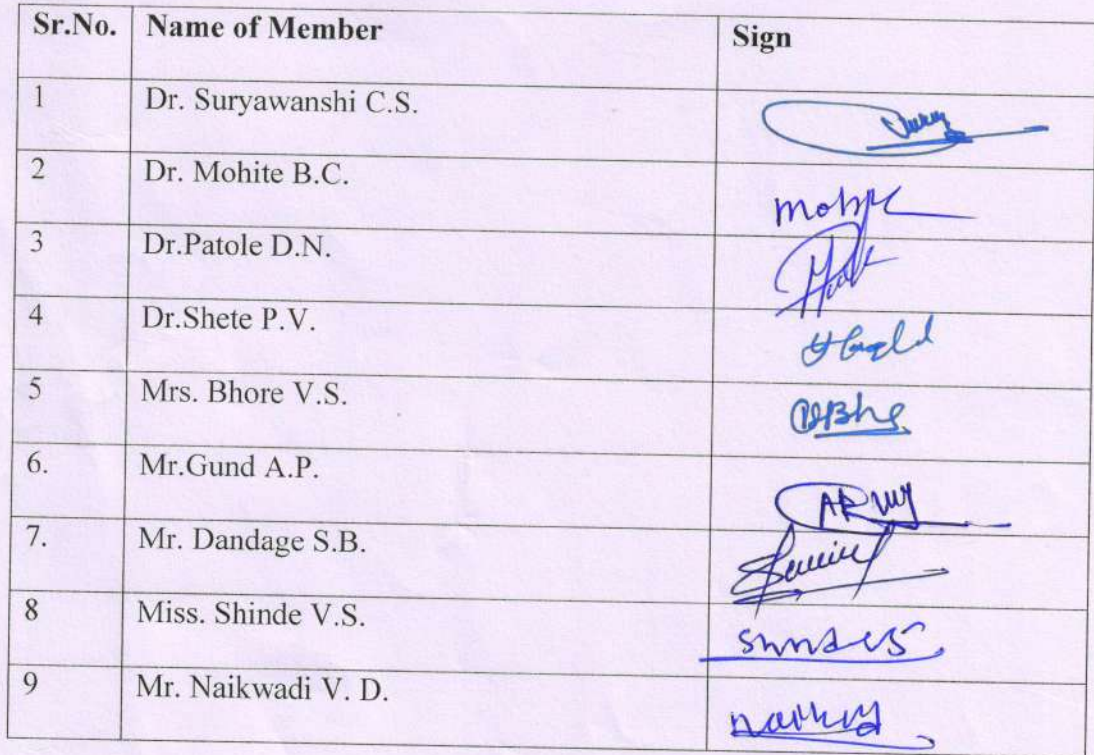 Sr.No. Name of Member Sign
1 Dr. Suryawanshi C.S.
2 Dr. Mohite B.C.
3 Dr.Patole D.N.
4 Dr.Shete P.V.
5 Mrs. Bhore V.S.
6. Mr.Gund A.P.
7. Mr. Dandage S.B.
8 Miss. Shinde V.S.
9 Mr. Naikwadi V. D.